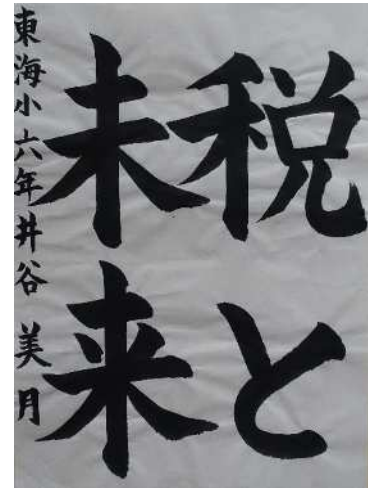 税と
未来
東海小六年井谷美月